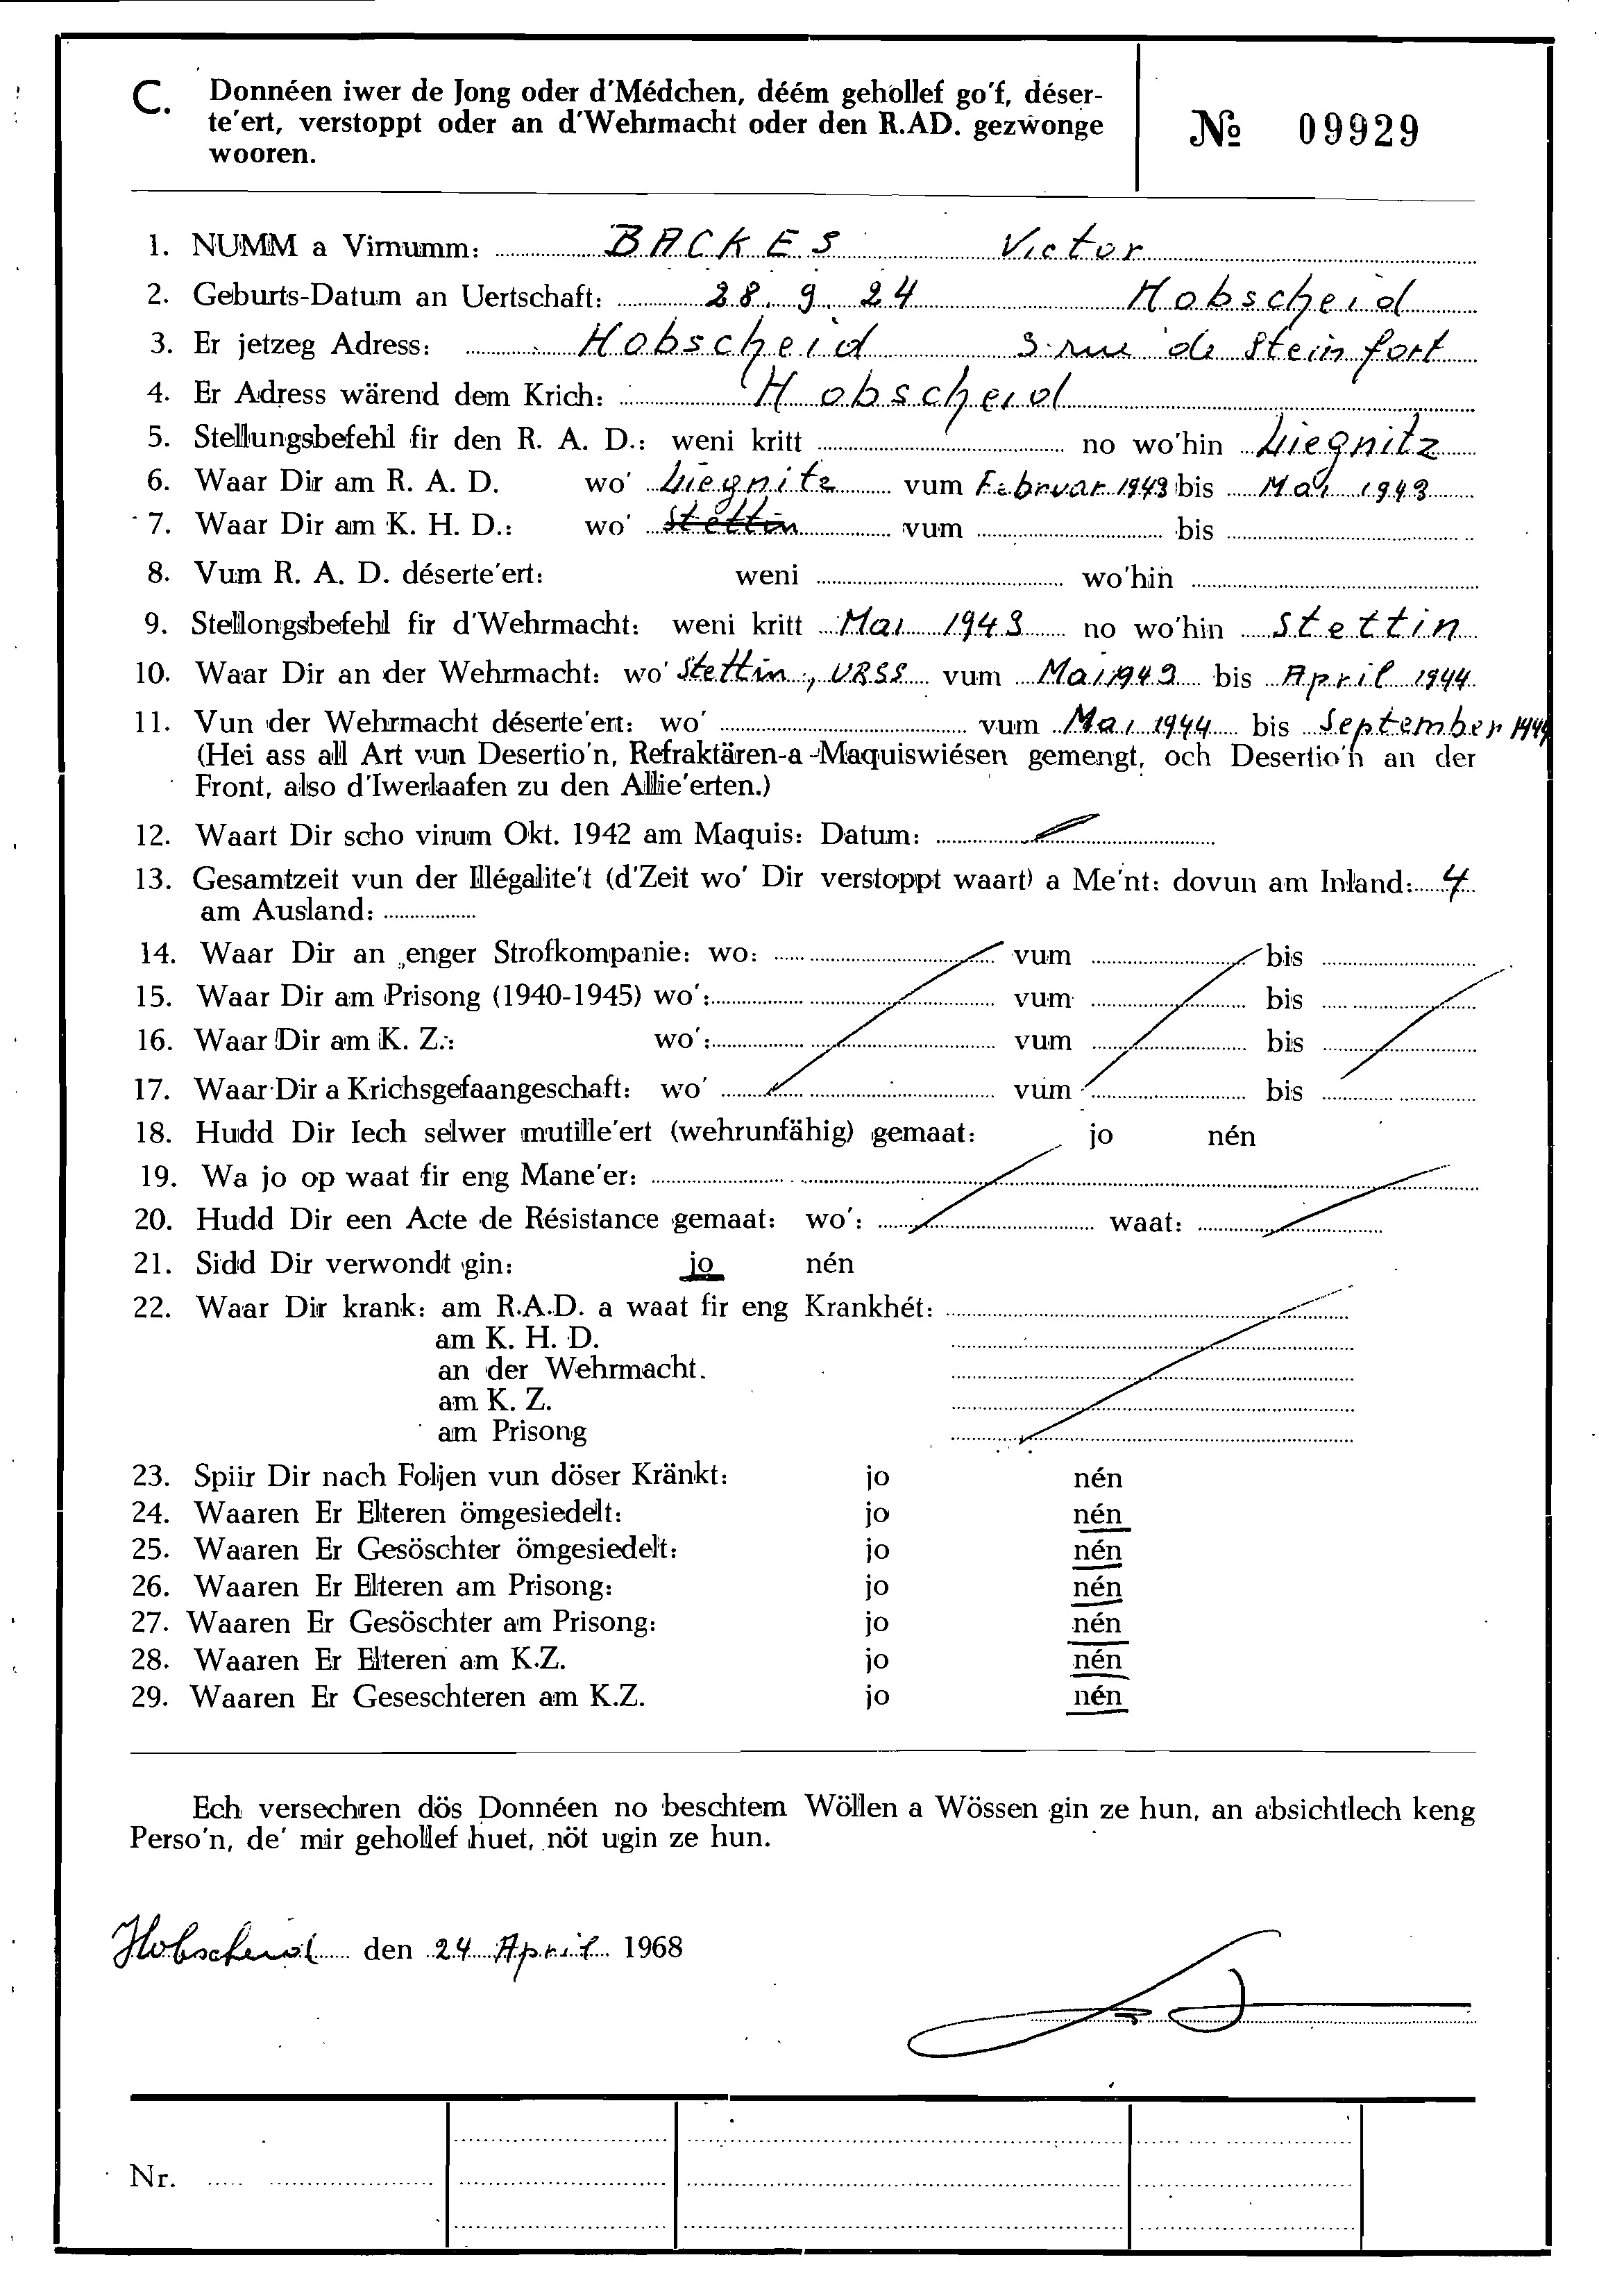 C. Donnéen iwer de Jong oder d'Médchen, déém gehollef go'f, déser-
te'ert, verstoppt oder an d'Wehrmacht oder den R.AD. gezwonge
wooren.
№ 09929
1. NUMM a Virnumm: BACKES Victor
2. Geburts-Datum an Uertschaft: 28. 9. 24 Hobscheid
3. Er jetzeg Adress: Hobscheid 3 rue de Steinfort
4. Er Adress wärend dem Krich: Hobscheid
5. Stellungsbefehl fir den R. A. D.: weni kritt no wo'hin Liegnitz
6. Waar Dir am R. A. D. wo' Liegnitz vum Februar 1943 bis Mai 1943
7. Waar Dir am K. H. D.: wo' Stettin vum bis
8. Vum R. A. D. déserte'ert: weni wo'hin
9. Stellongsbefehl fir d'Wehrmacht: weni kritt Mai 1943 no wo'hin Stettin
10. Waar Dir an der Wehrmacht: wo' Stettin, URSS vum Mai 1943 bis April 1944
11. Vun der Wehrmacht déserte'ert: wo' vum Mai 1944 bis September 1944
(Hei ass all Art vun Desertio'n, Refraktären-a -Maquiswiésen gemengt, och Desertio'n an der
Front, also d'Iwerlaafen zu den Allie'erten.)
12. Waart Dir scho virum Okt. 1942 am Maquis: Datum:
13. Gesamtzeit vun der Illégalite't (d'Zeit wo' Dir verstoppt waart) a Me'nt: dovun am Inland: 4
am Ausland:
14. Waar Dir an enger Strofkompanie: wo: vum bis
15. Waar Dir am Prisong (1940-1945) wo': vum bis
16. Waar Dir am K. Z.: wo': vum bis
17. Waar Dir a Krichsgefaangeschaft: wo' vum bis
18. Hudd Dir Iech selwer mutille'ert (wehrunfähig) gemaat: jo nén
19. Wa jo op waat fir eng Mane'er:
20. Hudd Dir een Acte de Résistance gemaat: wo': waat:
21. Sidd Dir verwondt gin: jo nén
22. Waar Dir krank: am R.A.D. a waat fir eng Krankhét:
am K. H. D.
an der Wehrmacht.
am K. Z.
am Prisong
23. Spiir Dir nach Foljen vun döser Kränkt: jo nén
24. Waaren Er Elteren ömgesiedelt: jo nén
25. Waaren Er Gesöschter ömgesiedelt: jo nén
26. Waaren Er Elteren am Prisong: jo nén
27. Waaren Er Gesöschter am Prisong: jo nén
28. Waaren Er Elteren am K.Z. jo nén
29. Waaren Er Geseschteren am K.Z. jo nén
Ech versechren dös Donnéen no beschtem Wöllen a Wössen gin ze hun, an absichtlech keng
Perso'n, de' mir gehollef huet, nöt ugin ze hun.
Hobscheid den 24 April 1968
Nr.